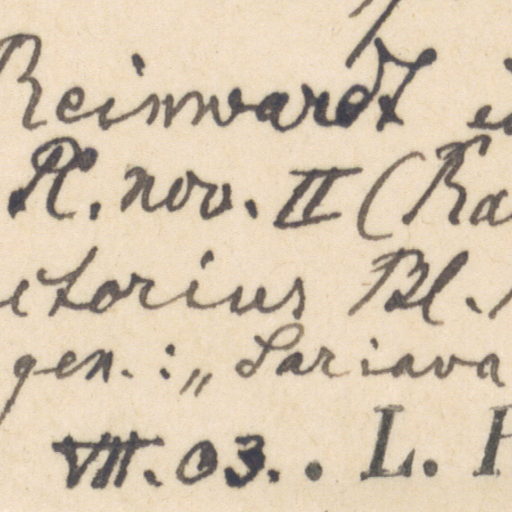 Reinwardt
Pl. nov. II (Ra
ctorius Bl.
gen. : „ Lariava
VII. 03. . L.